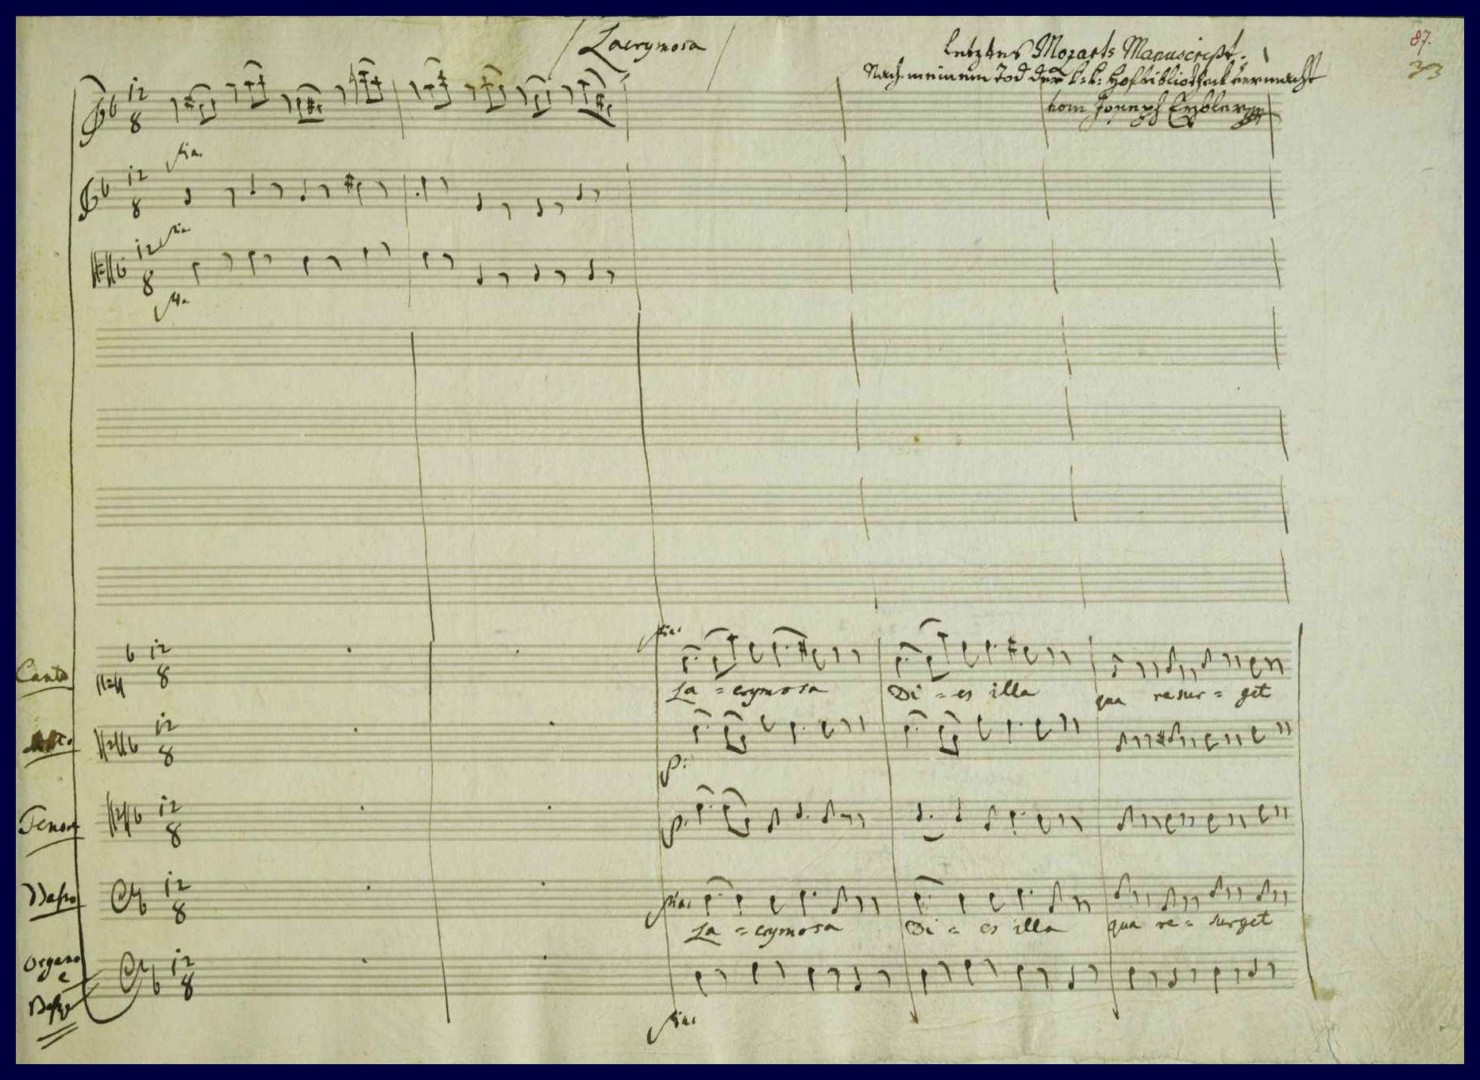 Lacrymosa
letztes Mozarts Manuscript.
Nach meinem Tod der k: k: Hofbibliotheck vermacht
vom Joseph Eybler
87.
33
12
8
pia:
12
8
pia:
12
8
pia:
pia:
Canto
12
8
La = crymosa Di = es illa qua resur = get
Alto
12
8
p:
Tenore
12
8
p:
Basso
12
8
pia:
La = crymosa Di = es illa qua re = surget
Organo
e
Basso
12
8
pia: